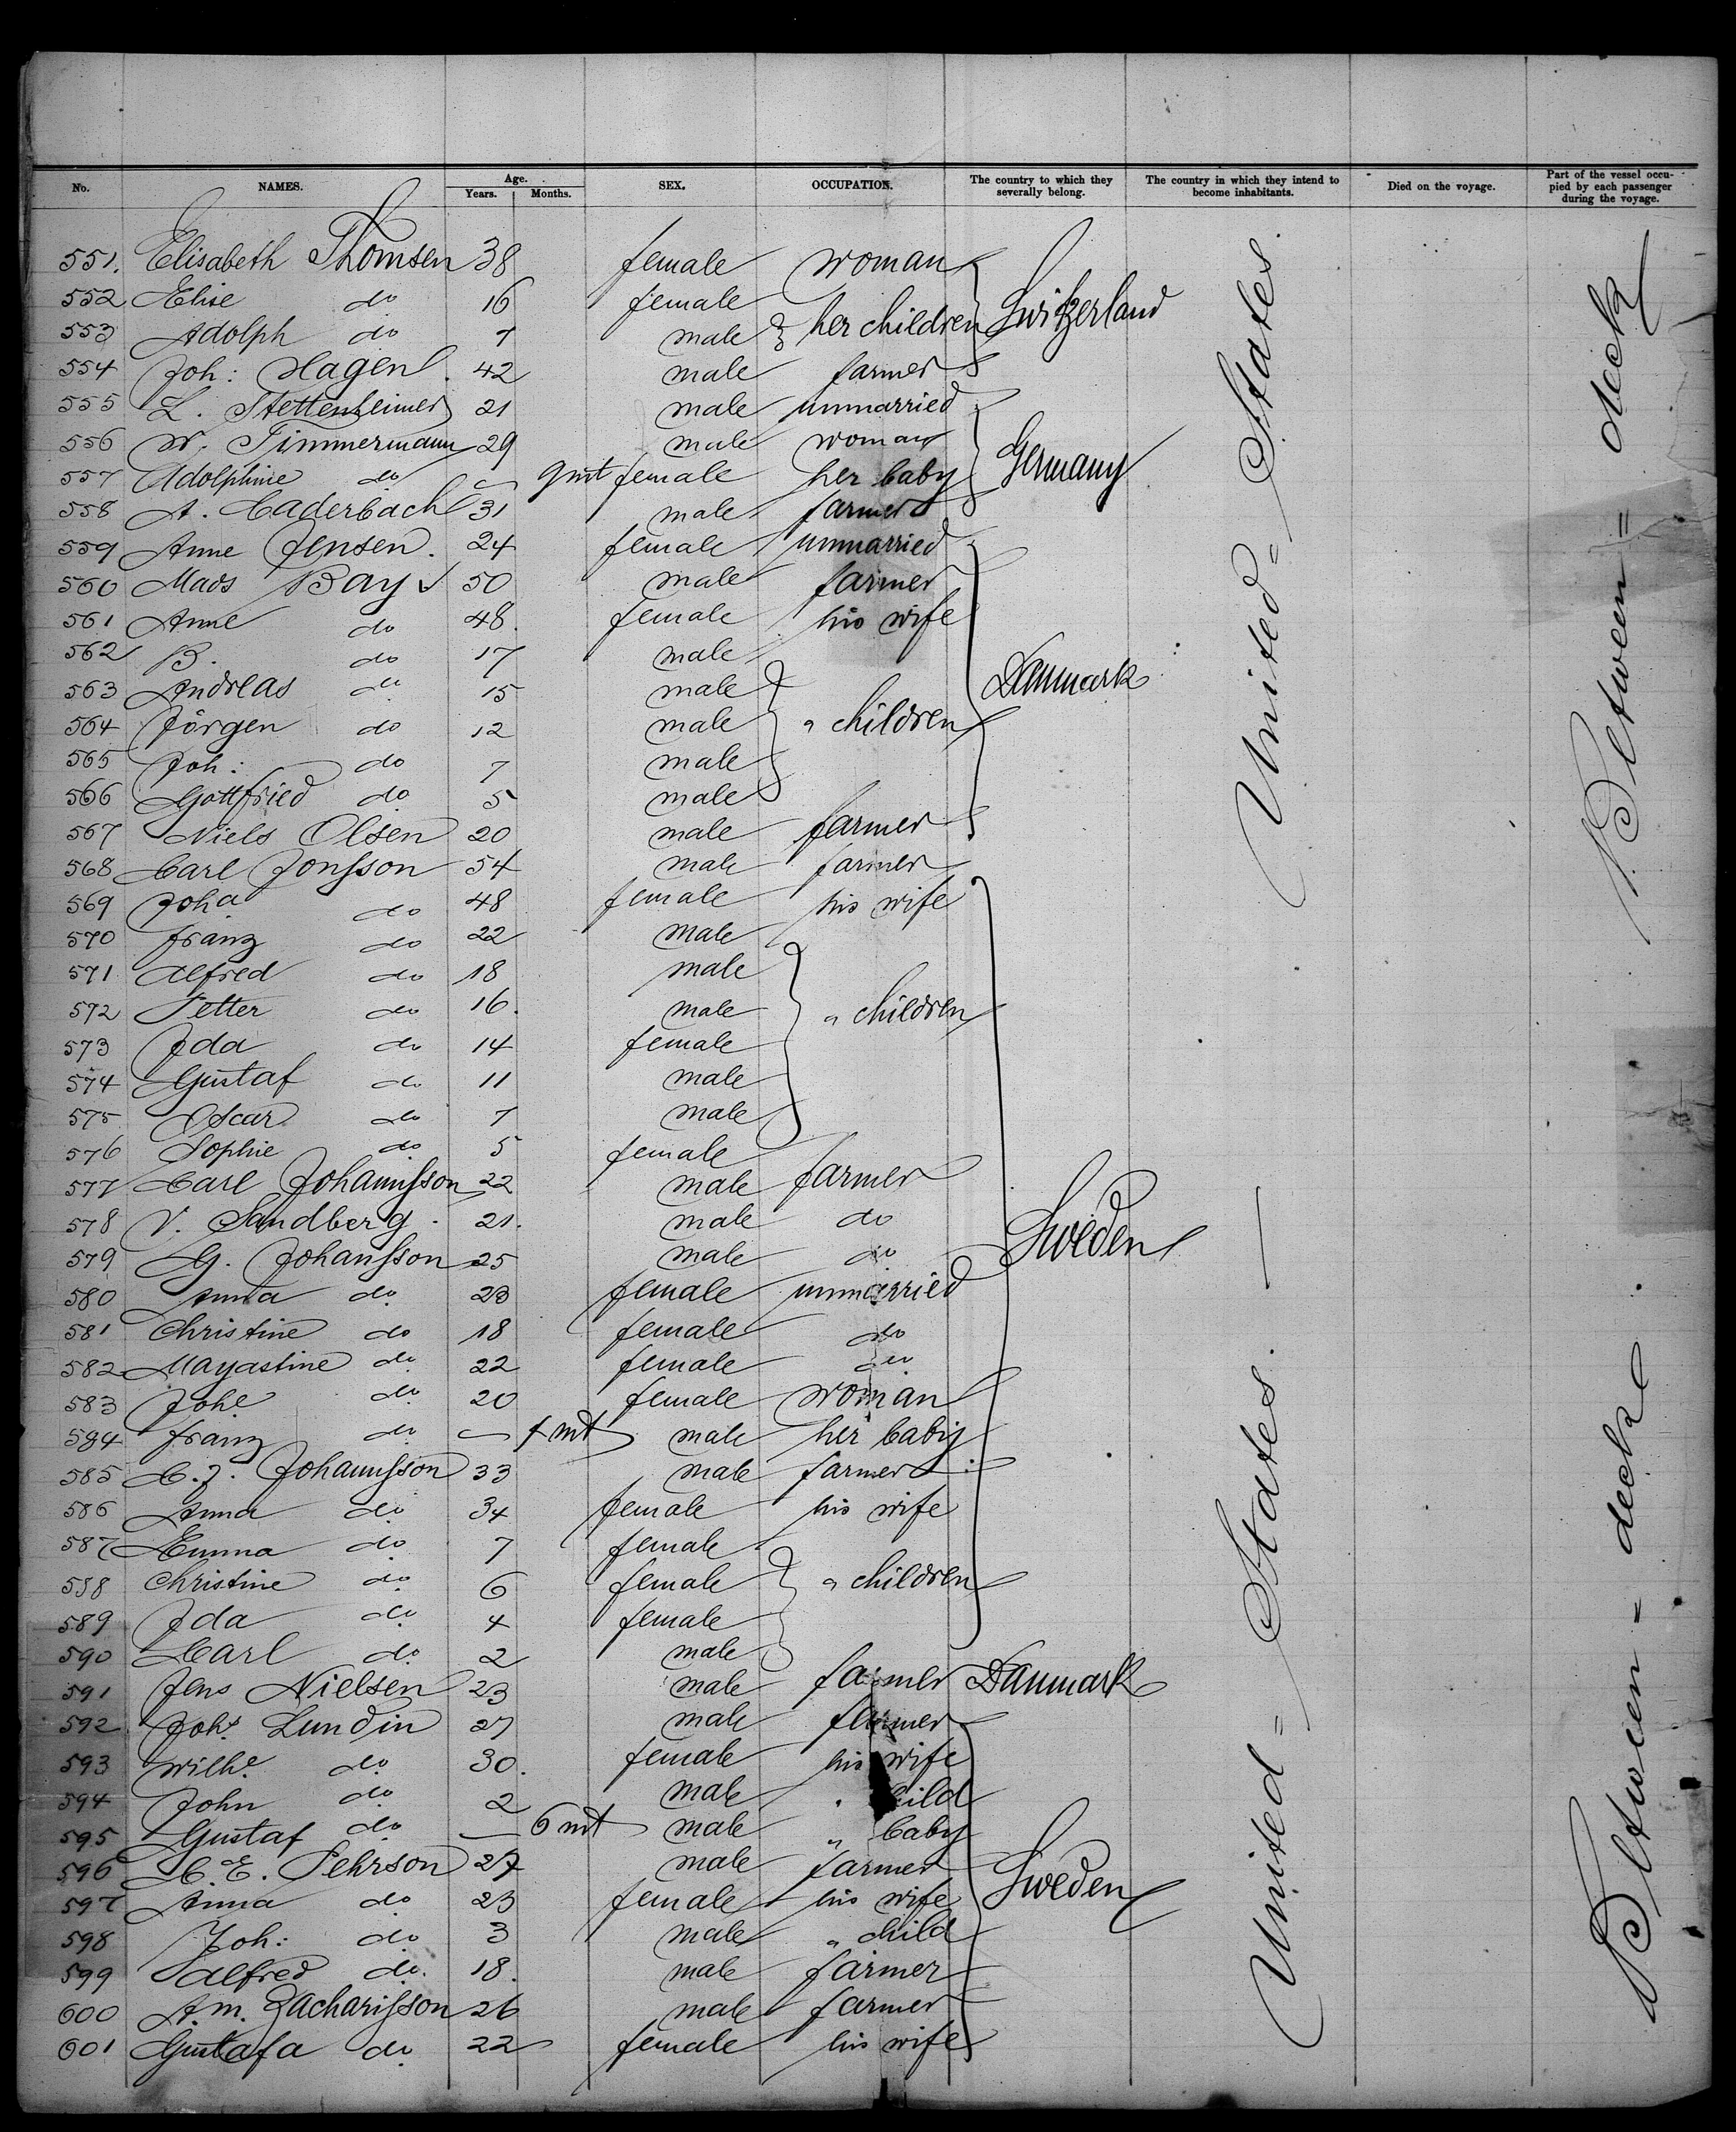 No. NAMES. Age. Years. Months. SEX. OCCUPATION. The country to which they severally belong. The country in which they intend to become inhabitants. Died on the voyage. Part of the vessel occupied by each passenger during the voyage.
551. Elisabeth Thomsen 38 female woman
552 Elise do 16 female
553 Adolph do 7 male her children Switzerland
554 Joh: Hagen 42 male farmer
555 L. Stettenheimer 21 male unmarried
556 W. Timmermann 29 male woman
557 Adolphine do 9 mt female her baby Germany
558 A. Caderbach 31 male farmer
559 Anne Jensen. 24 female unmarried
560 Mads Bay 50 male farmer
561 Anne do 48. female his wife
562 B. do 17 male
563 Andreas do 15 male Danmark
564 Jörgen do 12 male " children
565 Joh: do 7 male
566 Gottfried do 5 male
567 Niels Olsen 20 male farmer
568 Carl Jonsson 54 male farmer
569 Joha do 48 female his wife
570 franz do 22 male
571 Alfred do 18 male
572 Petter do 16. male " children
573 Ida do 14 female
574 Gustaf do 11 male
575 Oscar do 7 male
576 Sophie do 5 female
577 Carl Johannsson 22 male farmer
578 V. Sandberg. 21. male do
579 G. Johansson 25 male do Sweden
580 Anna do 23 female unmarried
581 Christine do 18 female do
582 Mayastine do 22 female do
583 Johe do 20 female woman
584 franz do mt male her baby
585 C. J. Johannsson 33 male farmer
586 Anna do 34 female his wife
587 Emma do 7 female
588 Christine do 6 female " children
589 Ida do 4 female
590 Carl do 2 male
591 Jens Nielsen 23 male farmer Danmark
592 Johs Lundin 27 male farmer
593 Wilhe do 30. female his wife
594 John do 2 male " child
595 Gustaf do 6 mt male " baby
596 C. E. Pehrson 27 male farmer Sweden
597 Anna do 23 female his wife
598 Joh: do 3 male " child
599 Alfred do. 18. male farmer
600 A. M. Zacharisson 26 male farmer
601 Gustafa do 22 female his wife
United = States.
United = States.
Between = deck
Between = deck.